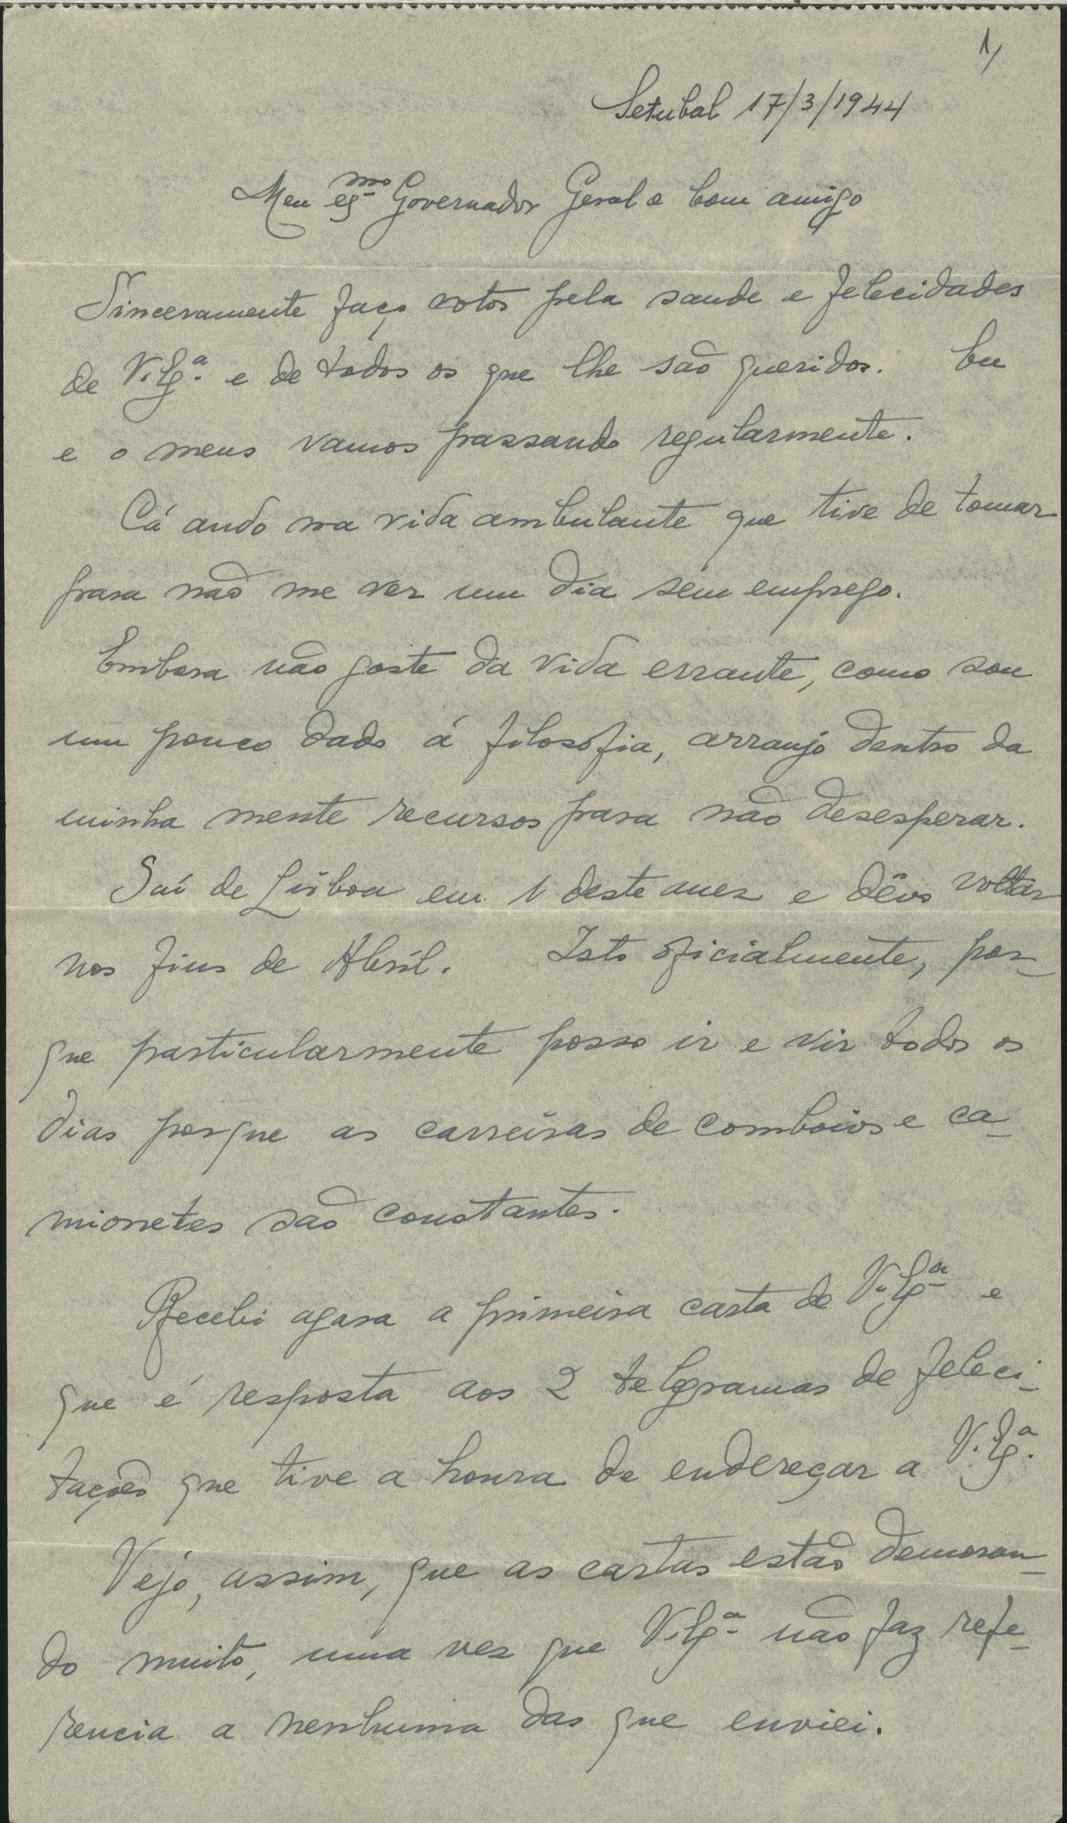 1,
Setubal 17/3/1944
Meu exmo Governador Geral e bom amigo
Sinceramente faço votos pela saude e felecidades
de V. Exª. e de todos os que lhe são queridos. Eu
e o meus vamos passando regularmente.
Cá ando na vida ambulante que tive de tomar
para não me ver um dia sem emprego.
Embora não goste da vida errante, como sou
um pouco dado á filosofia, arranjo dentro da
minha mente recursos para não desesperar.
Saí de Lisboa em 1 deste mez e dêvo voltar
nos fins de Abril. Isto oficialmente, por-
que particularmente posso ir e vir todos os
dias porque as carreiras de comboios e ca-
mionetes são constantes.
Recebi agora a primeira carta de V. Exª e
que é resposta aos 2 telgramas de feleci-
tações que tive a honra de endereçar a V. Exª.
Vejo, assim, que as cartas estão demoran-
do muito, uma vez que V. Exª não faz refe-
rencia a nenhuma das que enviei.